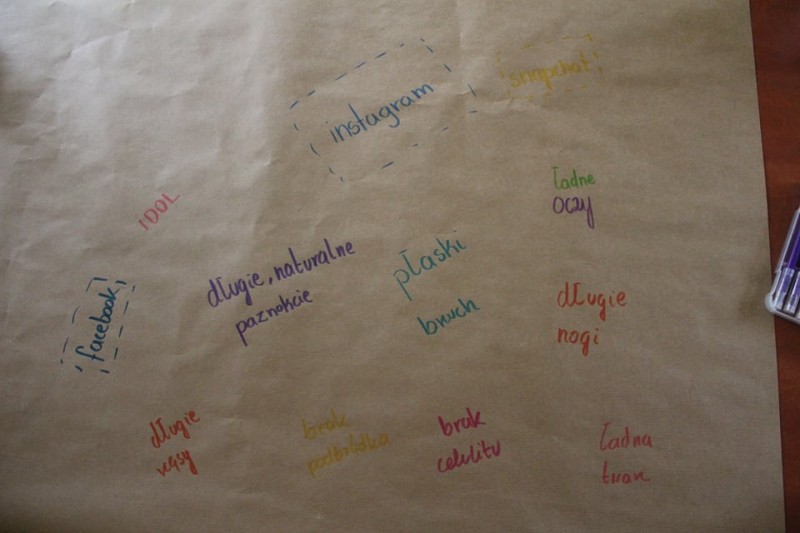 instagram
snapchat
ładne
oczy
IDOL
długie, naturalne
paznokcie
płaski
brzuch
długie
nogi
facebook
długie
rzęsy
brak
podbródka
brak
celulitu
ładna
twarz